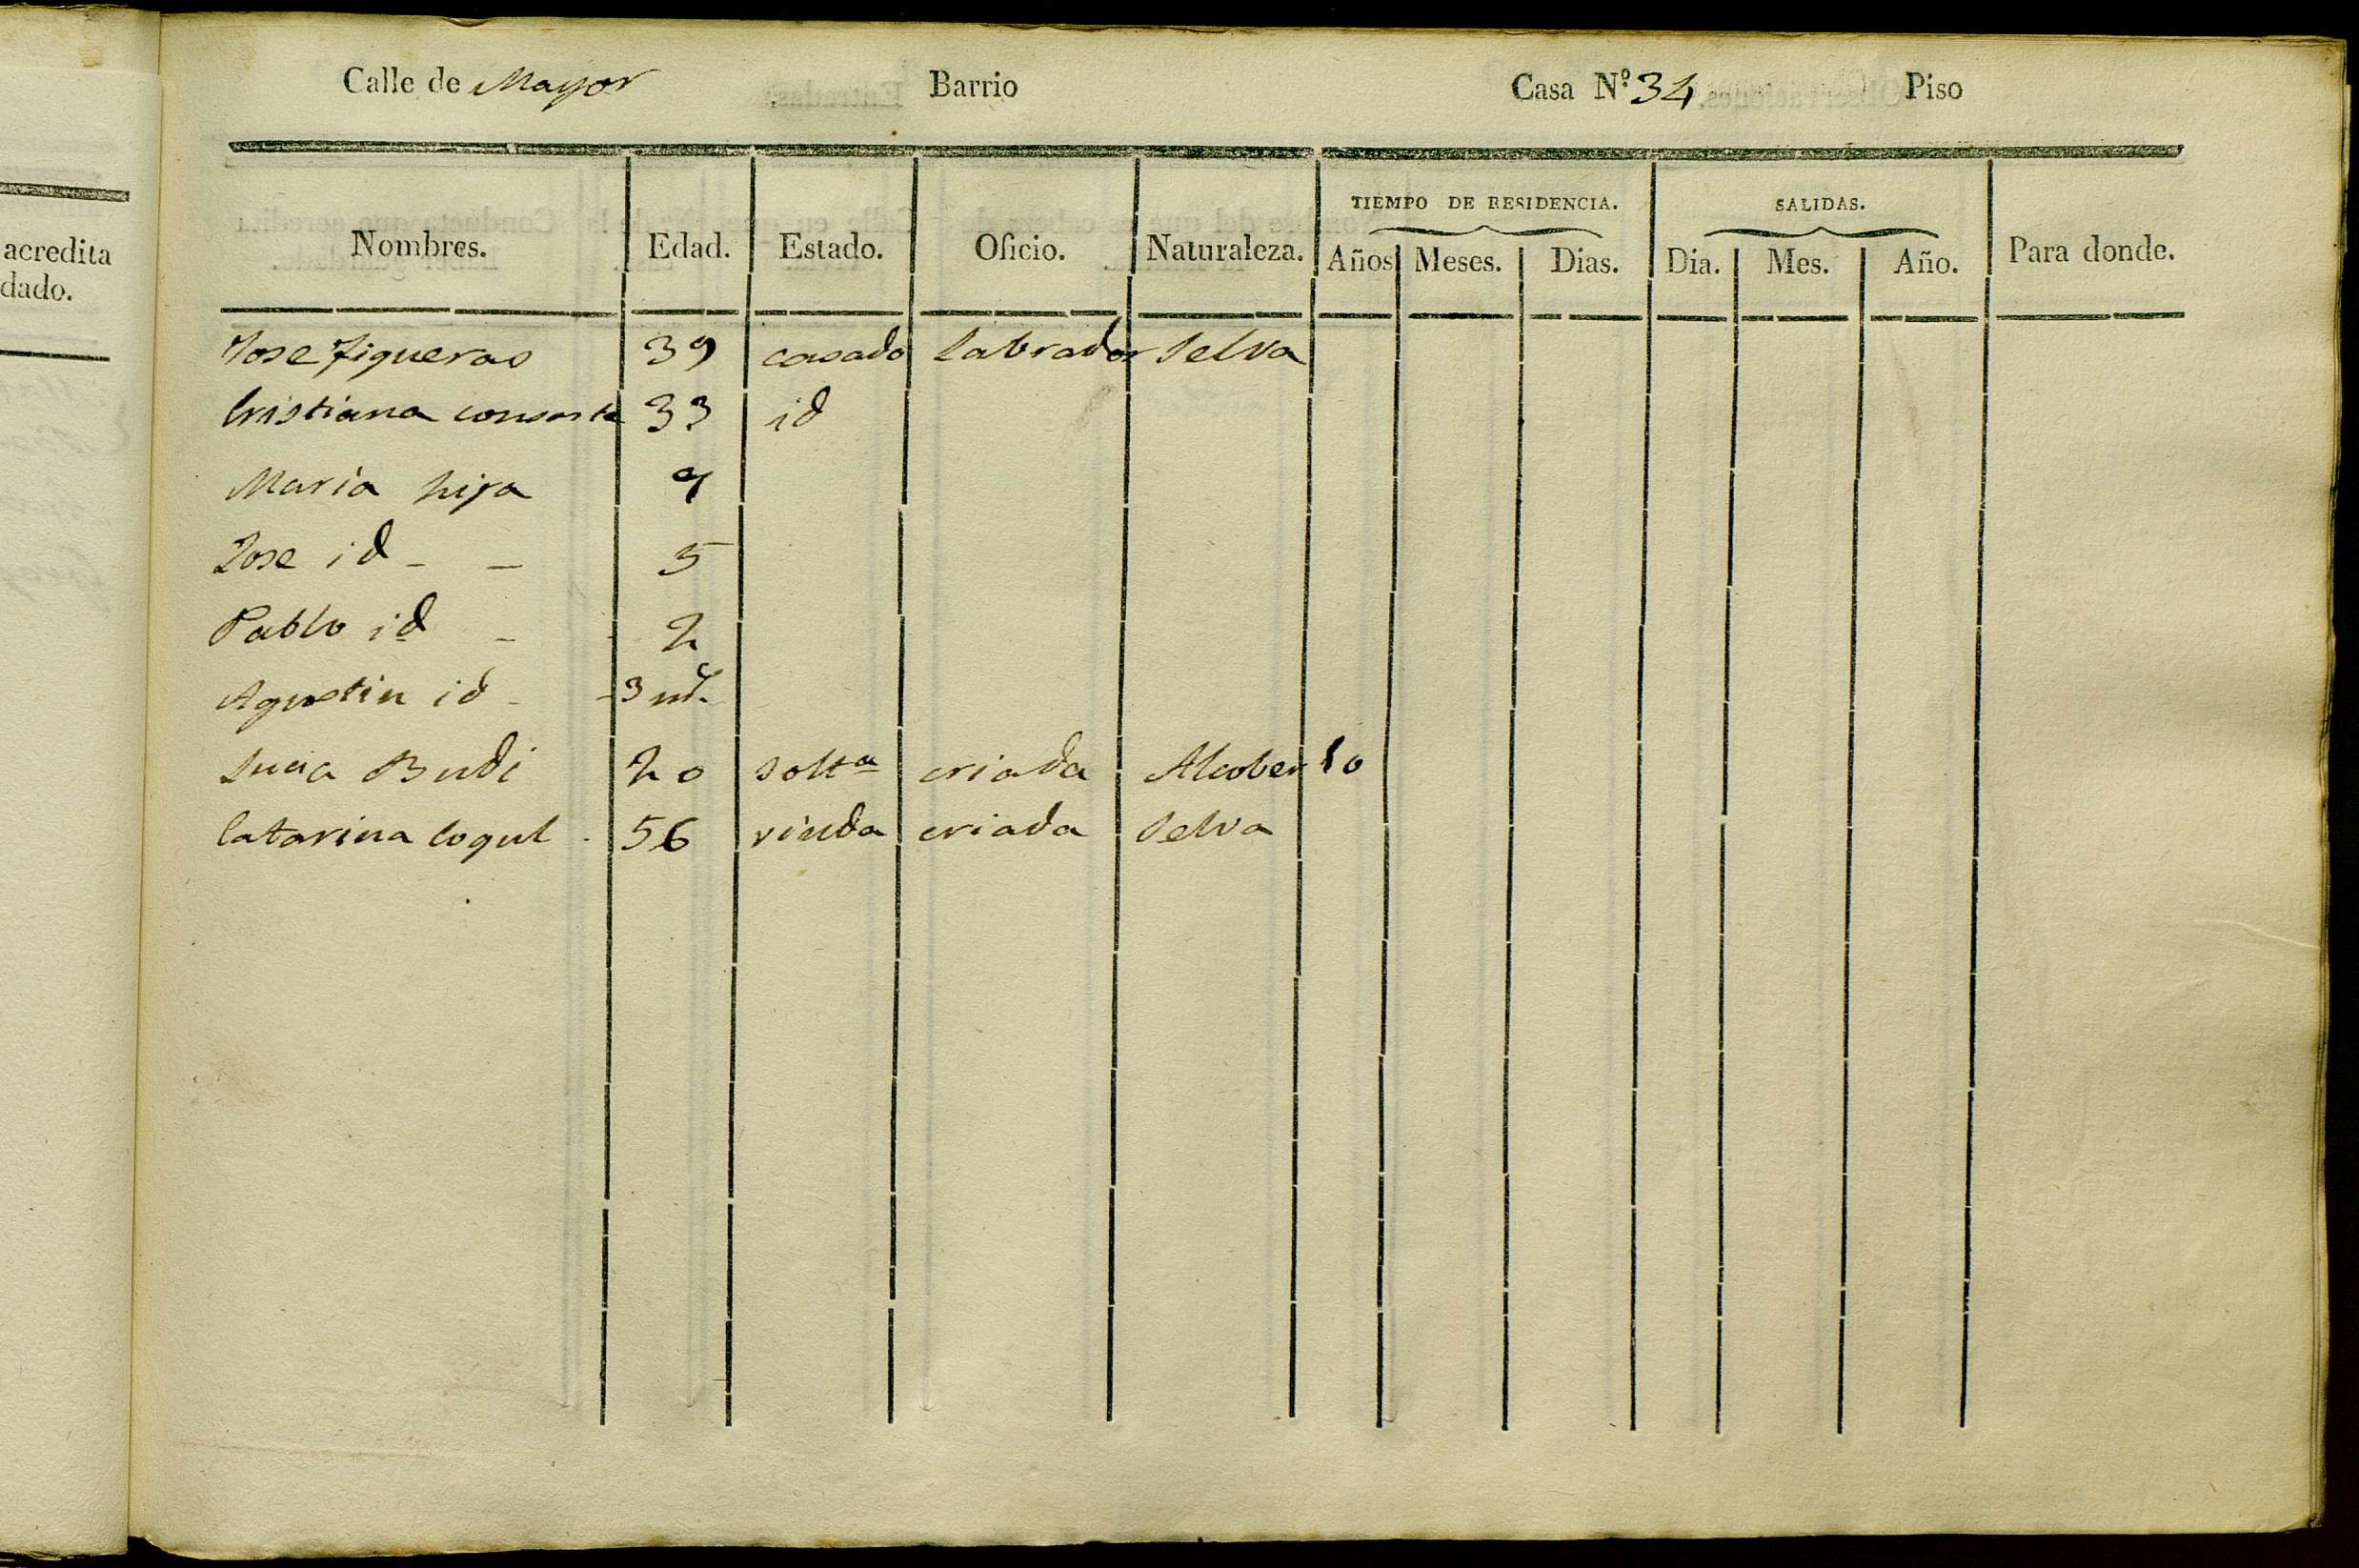 acredita
dado.
Calle de Mayor Barrio Casa N.º 34 Piso
TIEMPO DE RESIDENCIA. SALIDAS.
Nombres. Edad. Estado. Oficio. Naturaleza. Años Meses. Dias. Dia. Mes. Año. Para donde.
Jose Figueras 39 casado labrador Selva
Cristiana consorte 33 id
Maria hija 7
Jose id - - 5
Pablo id - 2
Agustin id - - 3 ms.
Budi 20 soltª criada Alcover 10
Catarina Cogul - 56 viuda criada Selva